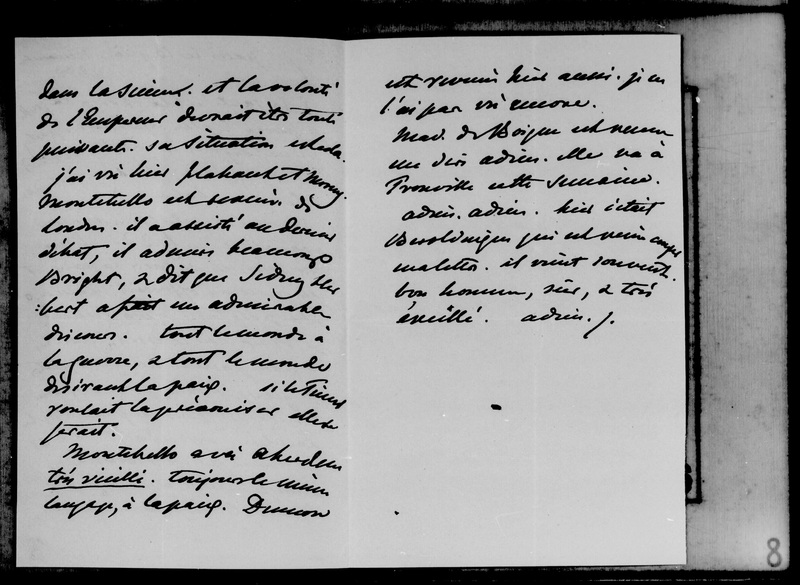 dans la Science. et la volonté
de l'Empereur devrait être toute
puissante. sa situation est
j'ai vu hier Flahault et Morny.
Montebello est revenu de
Londres. il a assisté au dernier
débat, il admire beaucoup
Bright, & dit que Sidney Her
bert a fait un admirable
discours. tout le monde à
la guerre, & tout le monde
désirant la paix. si le Times
voulait la préconiser elle se
ferait.
Montebello a vu Aberdeen
très vieilli. toujours le même
langage, à la paix. Dumon
est revenu hier aussi. je ne
l'ai pas vu encore.
Mad. de Boigne est venue
me dire adieu. elle va à
Trouville cette semaine.
adieu. adieu. hier c'était
qui est venu
ma lettre. il vient souvent.
bon homme, sûr, & très
éveillé. adieu.
8